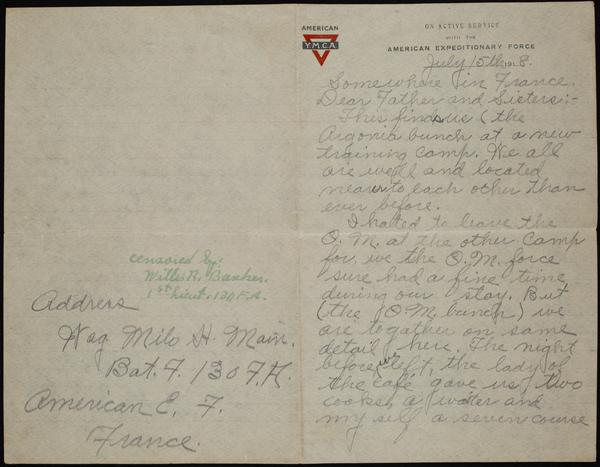 AMERICAN
Y.M.C.A
ON ACTIVE SERVICE
WITH THE
AMERICAN EXPEDITIONARY FORCE
July 15th 1918.
Somewhere in France.
Dear Father and Sisters:-
This finds us (the
Argonia bunch at a new
training camp. We all
are well and located
nearer to each other than
ever before.
I hated to leave the
Q. M. at the other camp
for we the Q. M. force
sure had a fine time
during our stay. But
(the Q M. bunch) we
are together on same
detail here. The night
before we left, the lady of
the cafe gave us, two
cooks, a waiter and
my self a seven course
censored by:
Willis R. Banker.
1st Lieut. 130 F.A.
Address
Wag Milo H. Main.
Bat. F. 130 F.A.
American E. F.
France.